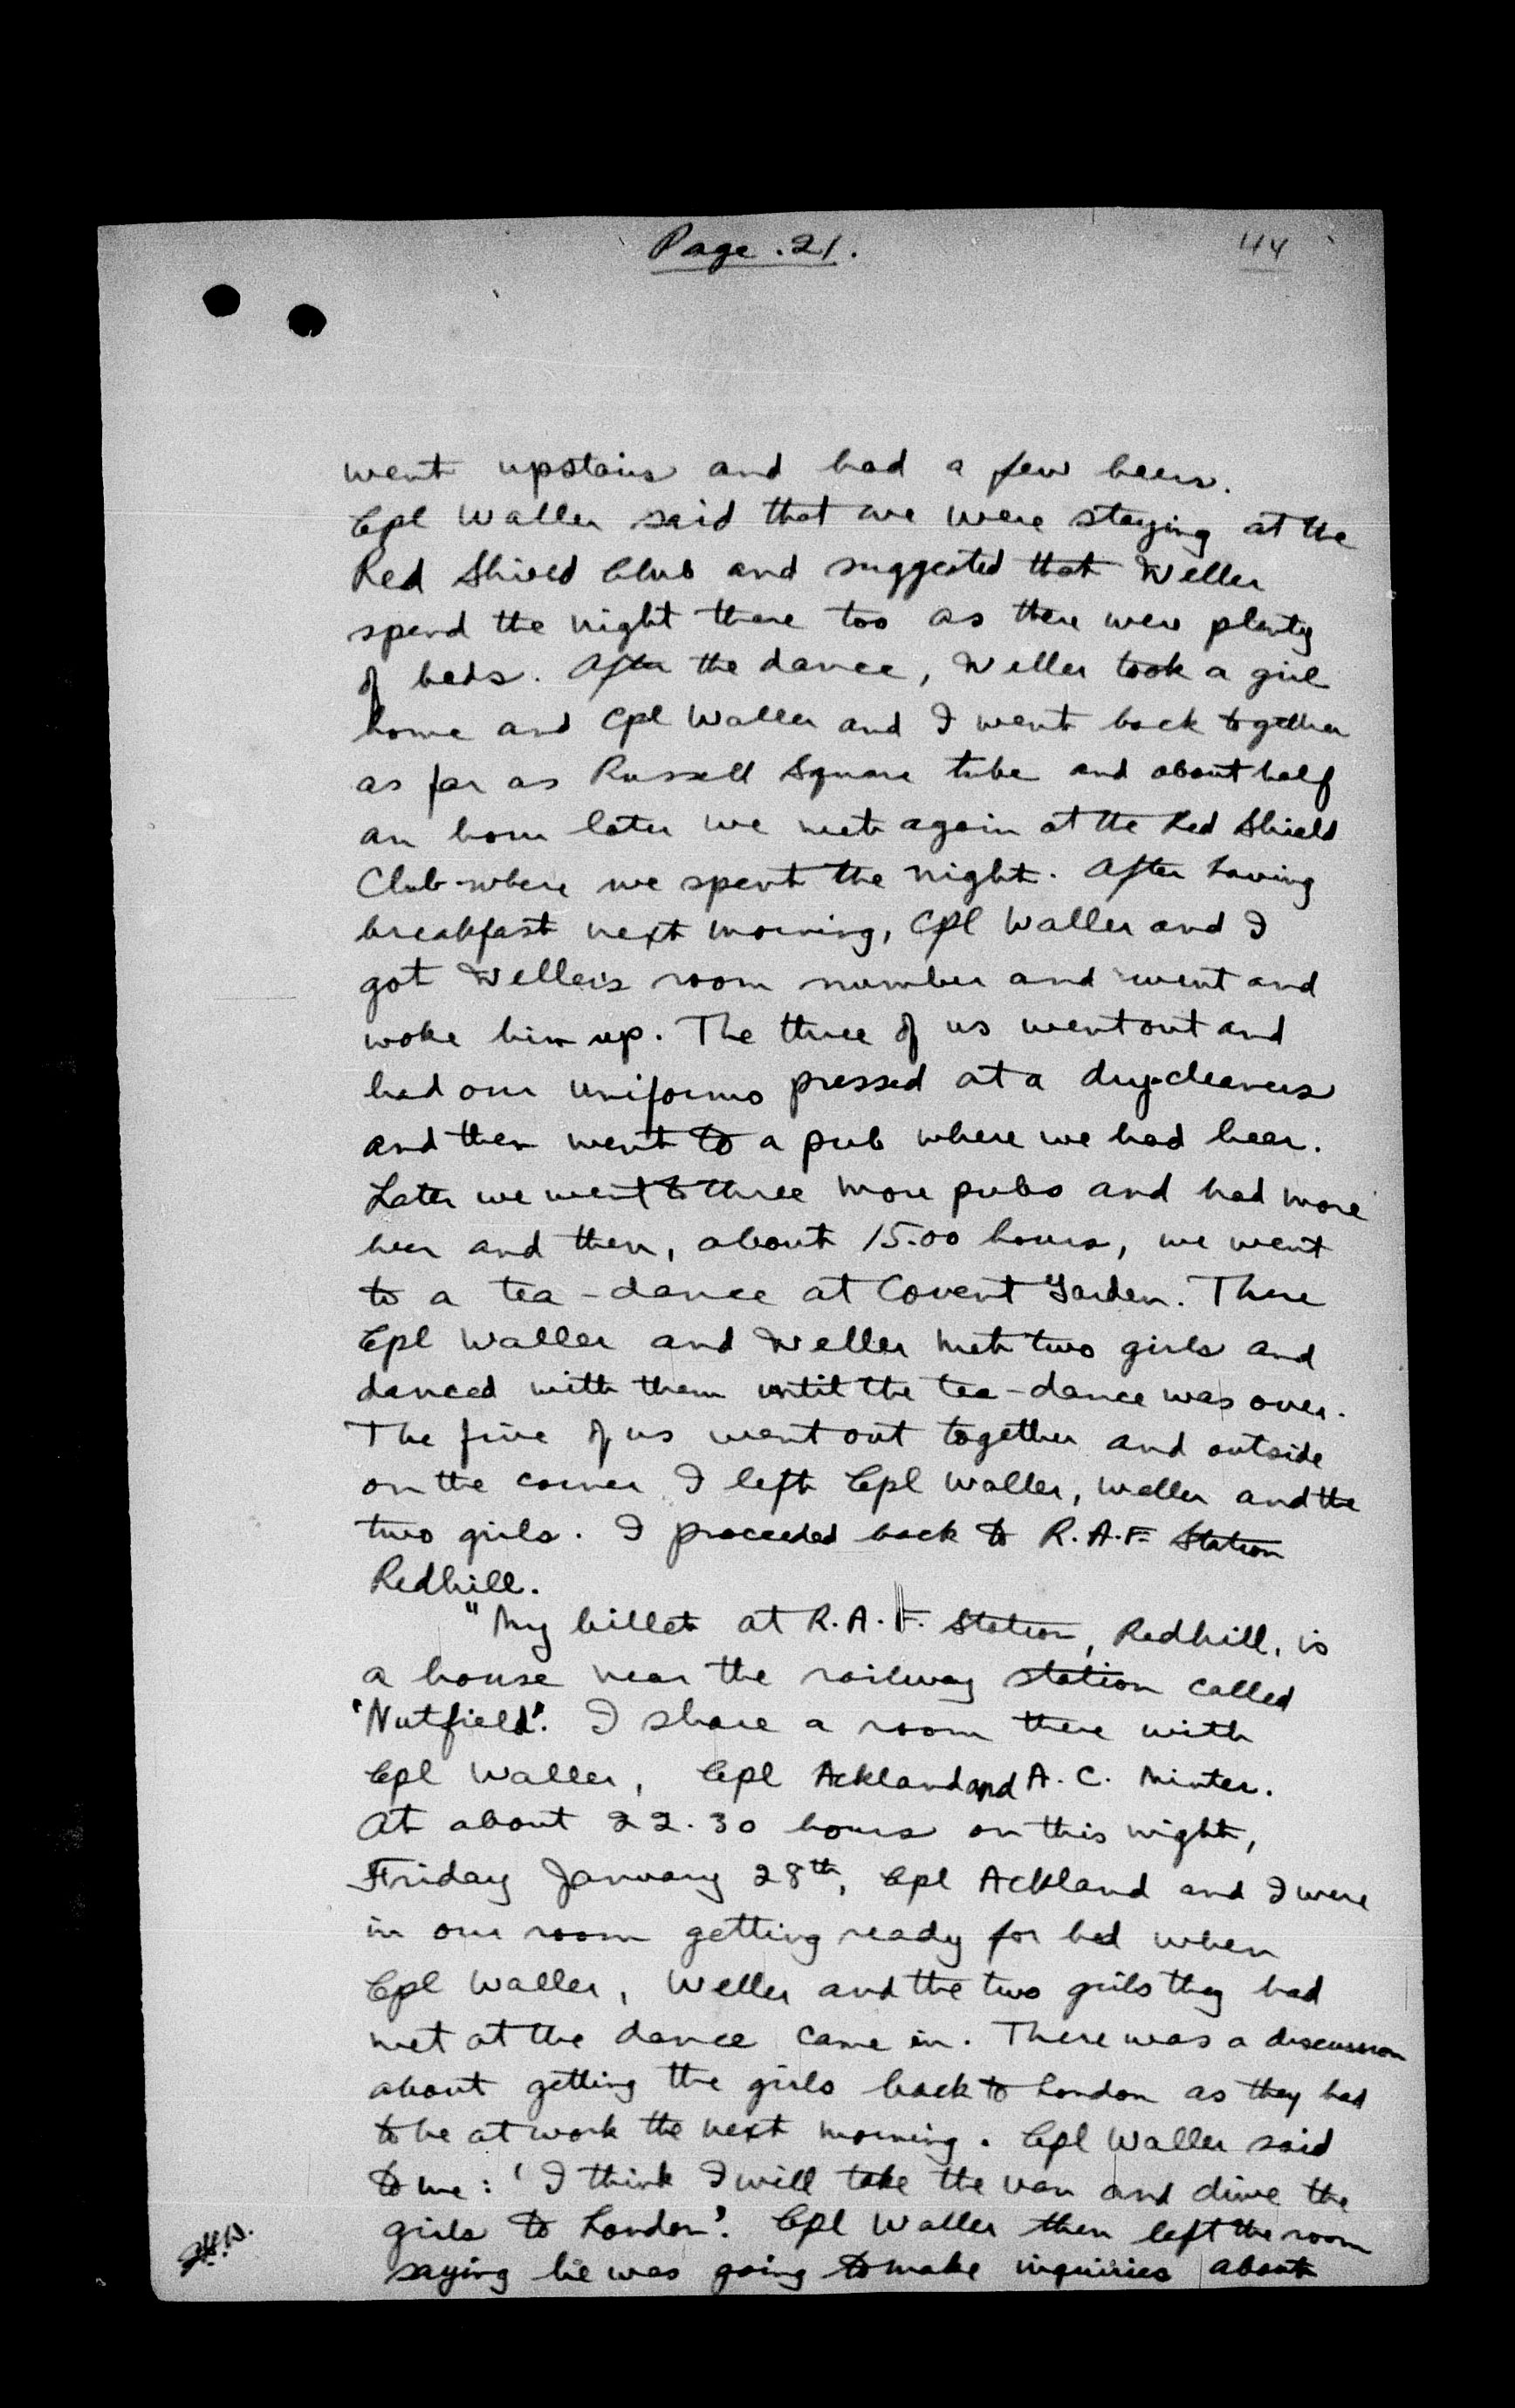 Page .21.
44
went upstairs and had a few beers.
Cpl Waller said that we were staying at the
Red Shield Club and suggested that Weller
spend the night there too as there were plenty
of beds. After the dance, Weller took a girl
home and Cpl Waller and I went back together
as far as Russell Square tube and about half
an hour later we met again at the Red Shield
Club where we spent the night. After having
breakfast next morning, Cpl Waller and I
got Weller's room number and went and
woke him up. The three of us went out and
had our uniforms pressed at a dry-cleaners
and then went to a pub where we had beer.
Later we went to three more pubs and had more
beer and then, about 15.00 hours, we went
to a tea-dance at Covent Garden. There
Cpl Waller and Weller met two girls and
danced with them until the tea-dance was over.
The five of us went out together and outside
on the corner I left Cpl Waller, Weller and the
two girls. I proceeded back to R.A.F Station
Redhill.
"My billet at R.A.F. Station, Redhill, is
a house near the railway station called
'Nutfield'. I share a room there with
Cpl Waller, Cpl Ackland and A.C. Minter.
At about 22.30 hours on this night,
Friday January 28th, Cpl Ackland and I were
in our room getting ready for bed when
Cpl Waller, Weller and the two girls they had
met at the dance came in. There was a discussion
about getting the girls back to London as they had
to be at work the next morning. Cpl Waller said
to me: 'I think I will take the van and drive the
girls to London'. Cpl Waller then left the room
saying he was going to make inquiries about